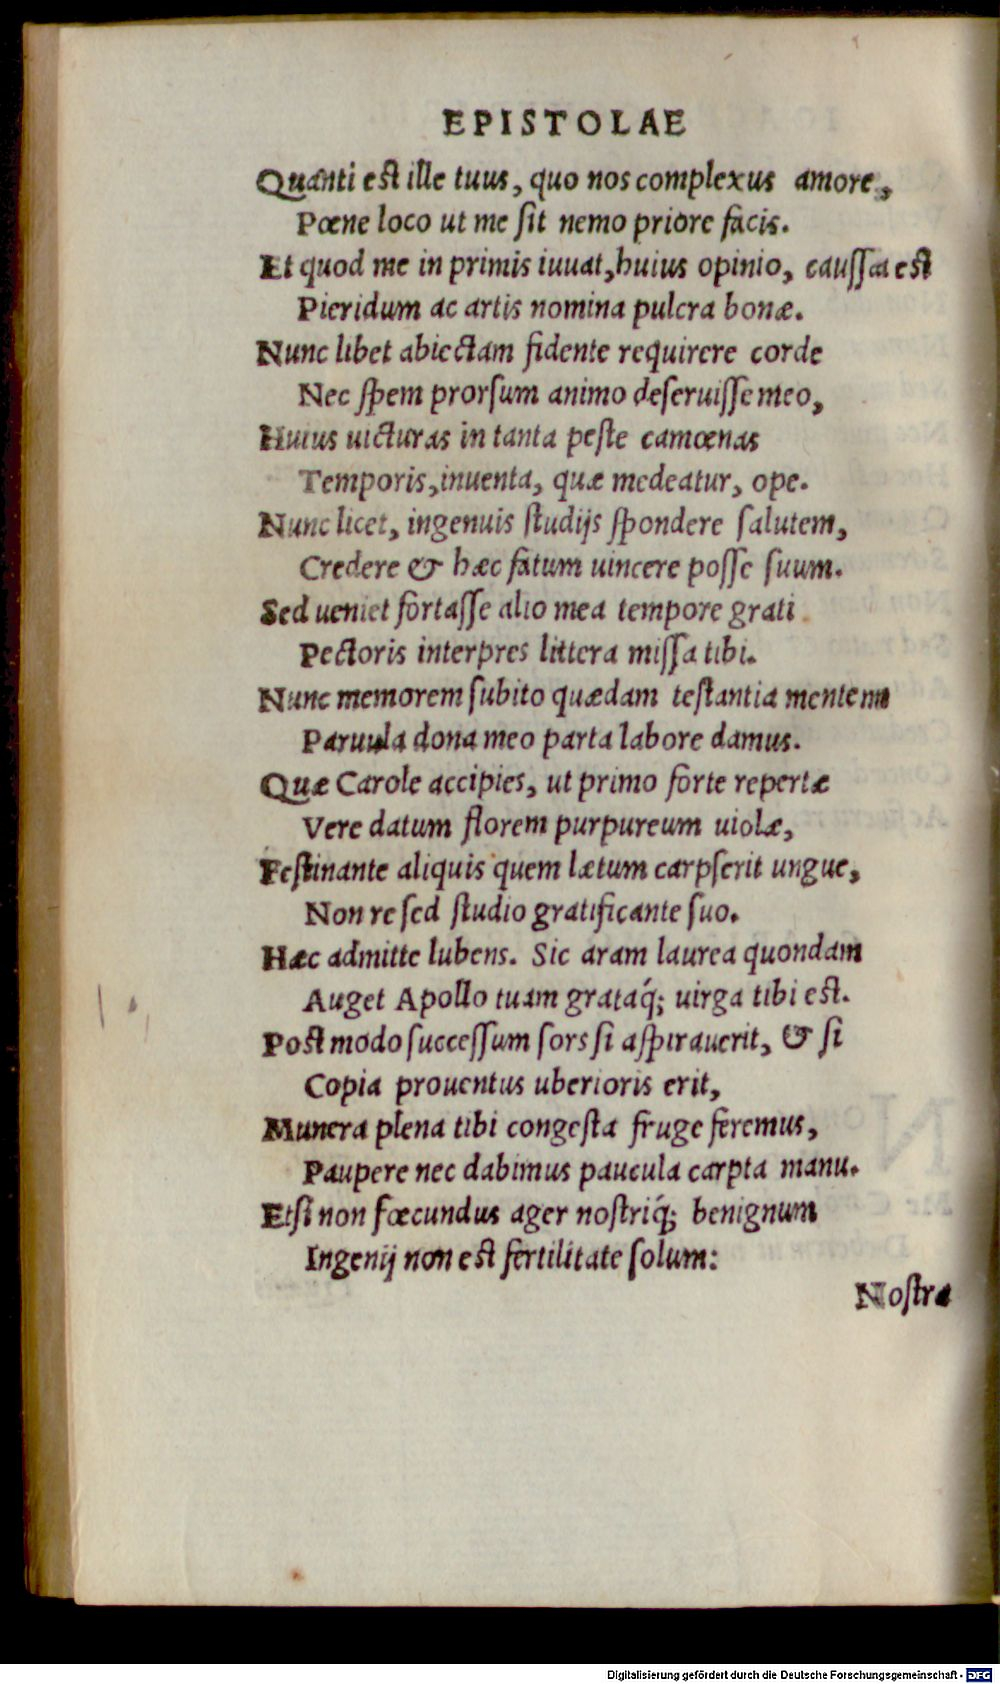 EPISTOLAE
Quanti est ille tuus, quo nos complexus amore,
Pœne loco ut me sit nemo priore facis.
Et quod me in primis iuuat, huius opinio, caussa est
Pieridum ac artis nomina pulcra bonæ.
Nunc libet abiectam fidente requirere corde
Nec spem prorsum animo deseruisse meo,
Huius uicturas in tanta peste camœnas
Temporis, inuenta, quæ medeatur, ope.
Nunc licet, ingenuis studijs spondere salutem,
Credere & hæc fatum uincere posse suum.
Sed ueniet fortasse alio mea tempore grati
Pectoris interpres littera missa tibi.
Nunc memorem subito quædam testantia mentem
Paruula dona meo parta labore damus.
Quæ Carole accipies, ut primo forte repertæ
Vere datum florem purpureum uiolæ,
Festinante aliquis quem lætum carpserit ungue,
Non re sed studio gratificante suo.
Hæc admitte lubens. Sic aram laurea quondam
Auget Apollo tuam grataq́; uirga tibi est.
Post modo successum sors si aspirauerit, & si
Copia prouentus uberioris erit,
Munera plena tibi congesta fruge feremus,
Paupere nec dabimus paucula carpta manu.
Etsi non fœcundus ager nostriq́; benignum
Ingenij non est fertilitate solum:
Nostra
Digitalisierung gefördert durch die Deutsche Forschungsgemeinschaft - DFG